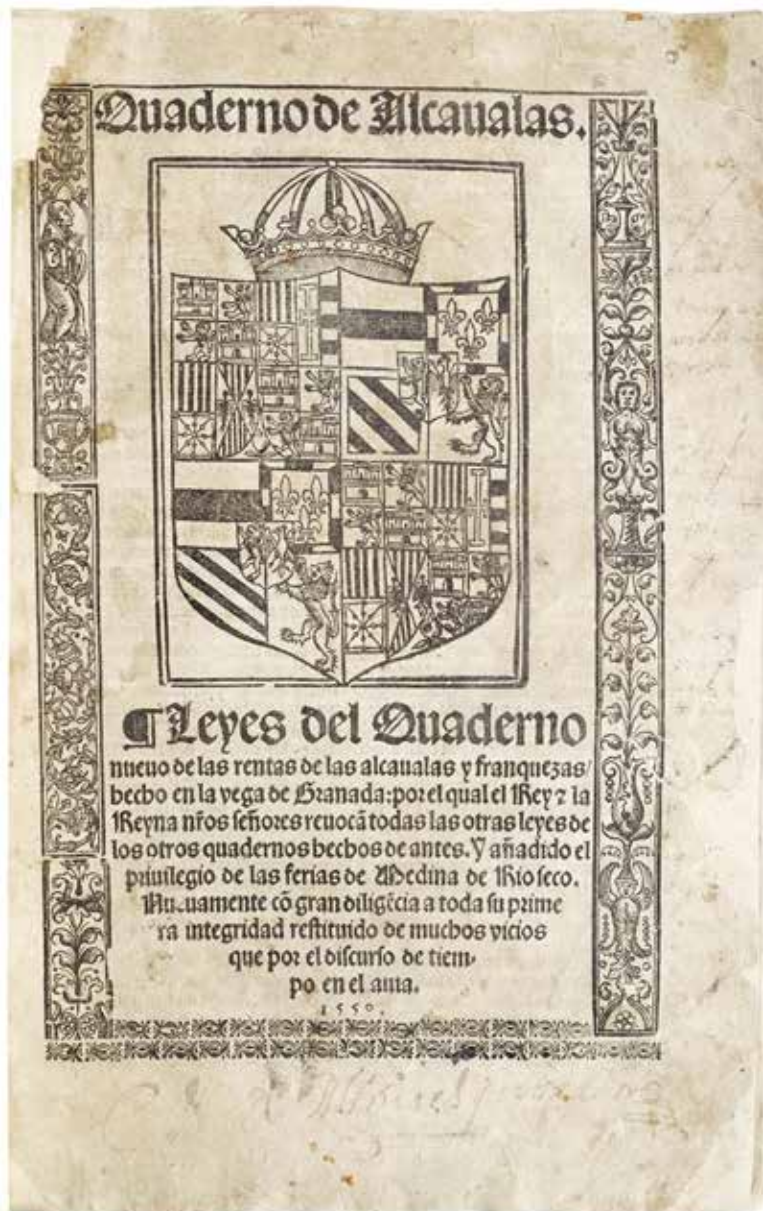 Quaderno de Alcaualas.
¶ Leyes del Quaderno
nueuo de las rentas de las alcaualas y franquezas/
hecho en la vega de Granada: por el qual el Rey ⁊ la
Reyna nr̃os señores reuocã todas las otras leyes de
los otros quadernos hechos de antes. Y añadido el
priuilegio de las ferias de Medina de Rioseco.
Nueuamente cõ gran diligẽcia a toda su prime
ra integridad restituido de muchos vicios
que por el discurso de tiem-
po en el auia.
1550.